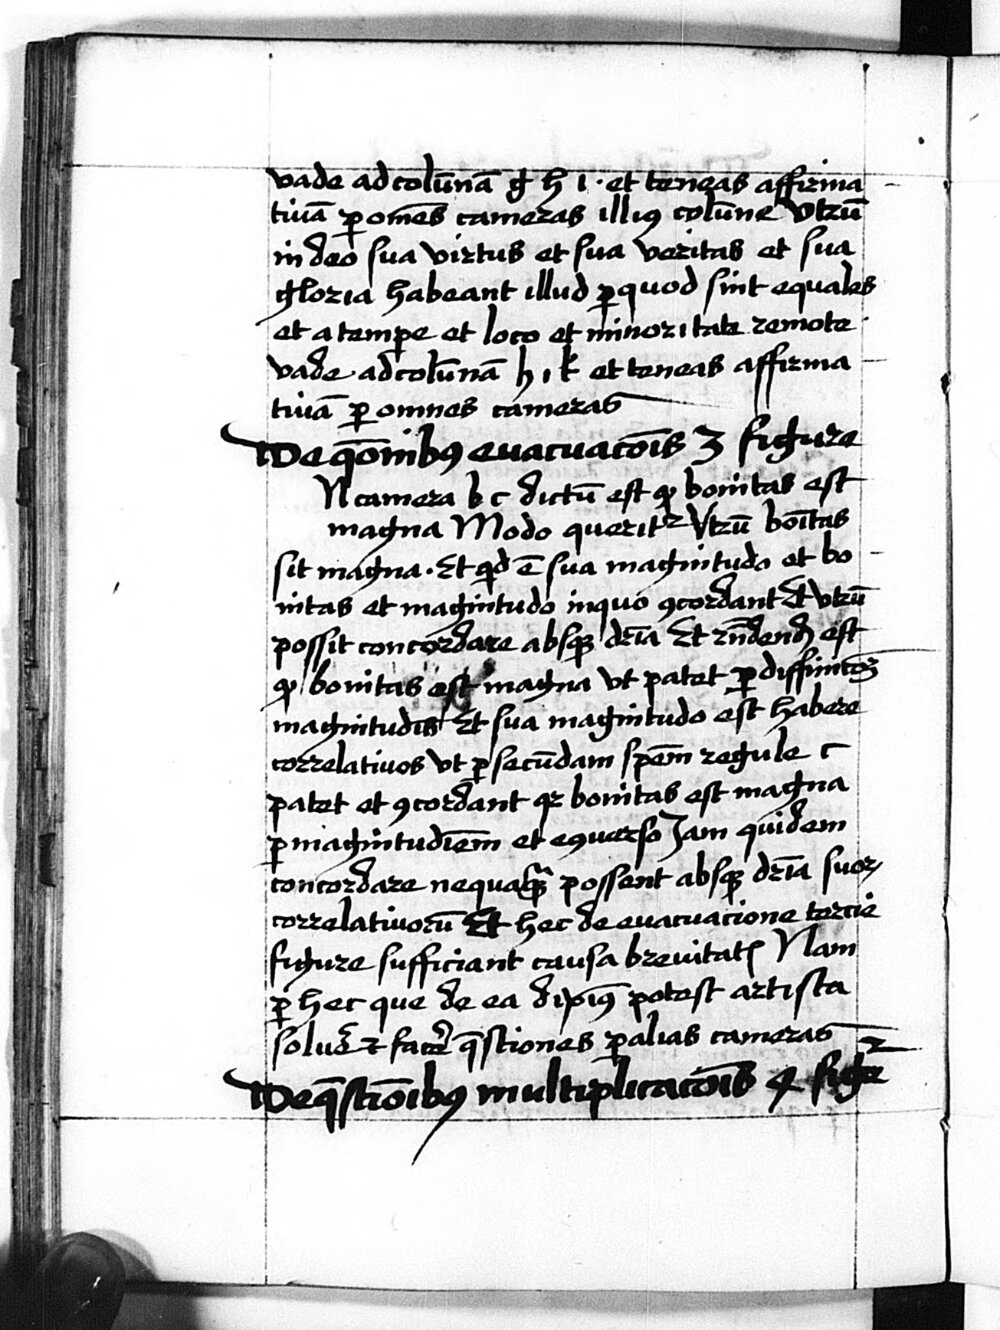 vade ad colūnā g h i · et teneas affirma
tiuā ꝑ om̄es cameras illiꝯ colūne Vtrū
in deo sua virtus et sua veritas et sua
gloria habeant illud ꝑ quod sint equales
et a tempe et loco et minoritate remote
vade ad colūnā h i k et teneas affirma
tiuā ꝑ omnes cameras
De qōnibꝯ euacuacōis 3 figure
N camera b c dictū est ꝙ bonitas est
magna Modo queritᷣ Vtrū boītas
sit magna · Et qͥd ē sua magnitudo et bo
nitas et magnitudo in quo ꝯcordant Et vtrū
possit concordare absqꝫ dr̄ia Et rn̄dend est
ꝙ bonitas est magna vt patet ꝑ diffinicōꝫ
magnitudīs Et sua magnitudo est habere
correlatiuos vt ꝑ secūdam spēm regule c
patet et ꝯcordant qꝛ bonitas est magna
ꝑ magnitudīem et eꝯuerso Jam quidem
concordare nequaqͣꝫ possent absqꝫ dr̄ia suoꝝ
correlatiuorū Et hec de euacuacione tercie
figure sufficiant causa breuitatꝭ Nam
ꝑ hec que de ea dixiꝯ potest artista
soluē̄ ⁊ facē̄ q̄stiones ꝑ alias cameras
De q̄stiōibꝯ multiplicacōis 4 figᷣe